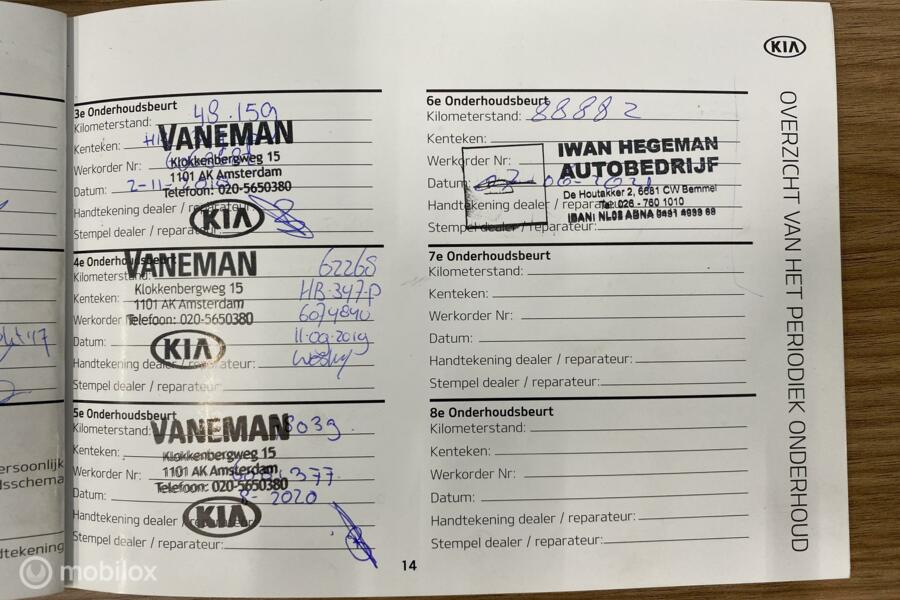 KIA
OVERZICHT VAN HET PERIODIEK ONDERHOUD
3e Onderhoudsbeurt
Kilometerstand: 48.159
Kenteken:
VANEMAN
Klokkenbergweg 15
Werkorder Nr:
1101 AK Amsterdam
Datum: 2-11-2018
Telefoon: 020-5650380
Handtekening dealer / reparateur:
KIA
Stempel dealer / reparateur:
4e Onderhoudsbeurt
VANEMAN
Kilometerstand: 62268
Klokkenbergweg 15
Kenteken: HB-347-P
1101 AK Amsterdam
Werkorder
Telefoon: 020-5650380
6074840
Datum: 11-09-2019
KIA
Handtekening dealer / reparateur:
Stempel dealer / reparateur:
5e Onderhoudsbeurt
Kilometerstand: 8039
VANEMAN
Kenteken:
Klokkenbergweg 15
1101 AK Amsterdam
Werkorder Nr: 377
Telefoon: 020-5650380
Datum: 8-2020
KIA
Handtekening dealer / reparateur
Stempel dealer / reparateur:
6e Onderhoudsbeurt
Kilometerstand: 88882
Kenteken:
IWAN HEGEMAN
Werkorder Nr:
AUTOBEDRIJF
Datum: 06-2021
De Houtakker 2, 6681 CW Bemmel
Handtekening dealer / reparateur:
Tel: 026 - 760 1010
IBAN: NL02 ABNA 0491 4999 68
Stempel dealer / reparateur:
7e Onderhoudsbeurt
Kilometerstand:
Kenteken:
Werkorder Nr:
Datum:
Handtekening dealer / reparateur:
Stempel dealer / reparateur:
8e Onderhoudsbeurt
Kilometerstand:
Kenteken:
Werkorder Nr:
Datum:
Handtekening dealer / reparateur:
Stempel dealer / reparateur:
14
ersoonlijk
dsschema
dtekening
mobilox